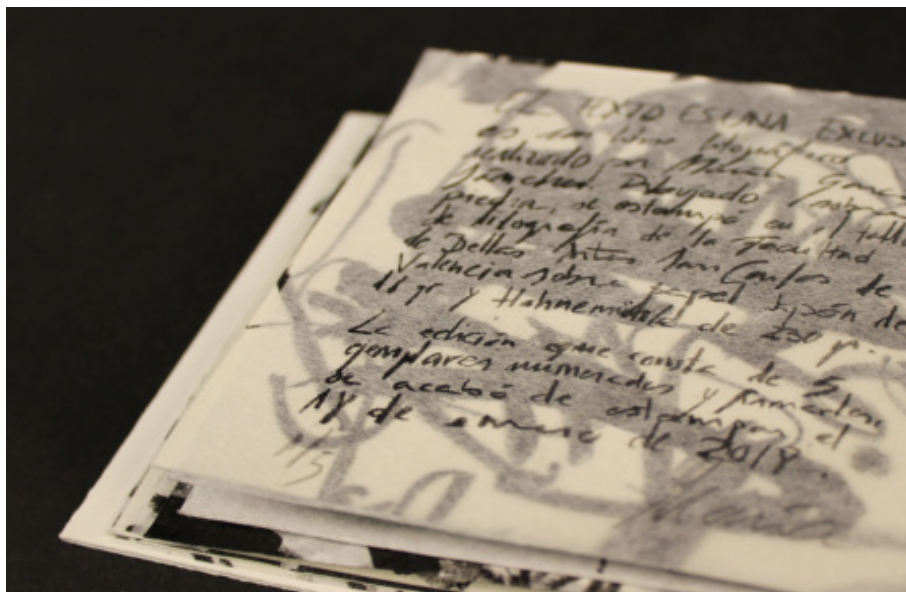 EL TEXTO ES UNA EXCUS
es un libro litográfico
realizado por María
Dibujado sobre
piedra, se estampó en el tall
de litografía de la Facultad
de Bellas Artes San Carlos de
Valencia sobre papel Japón de
11 gr y Hahnemühle de 230 gr.
La edición que consta de 5
ejemplares numerados y firmados,
se acabó de estampar el
18 de enero de 2018.
1/5
María